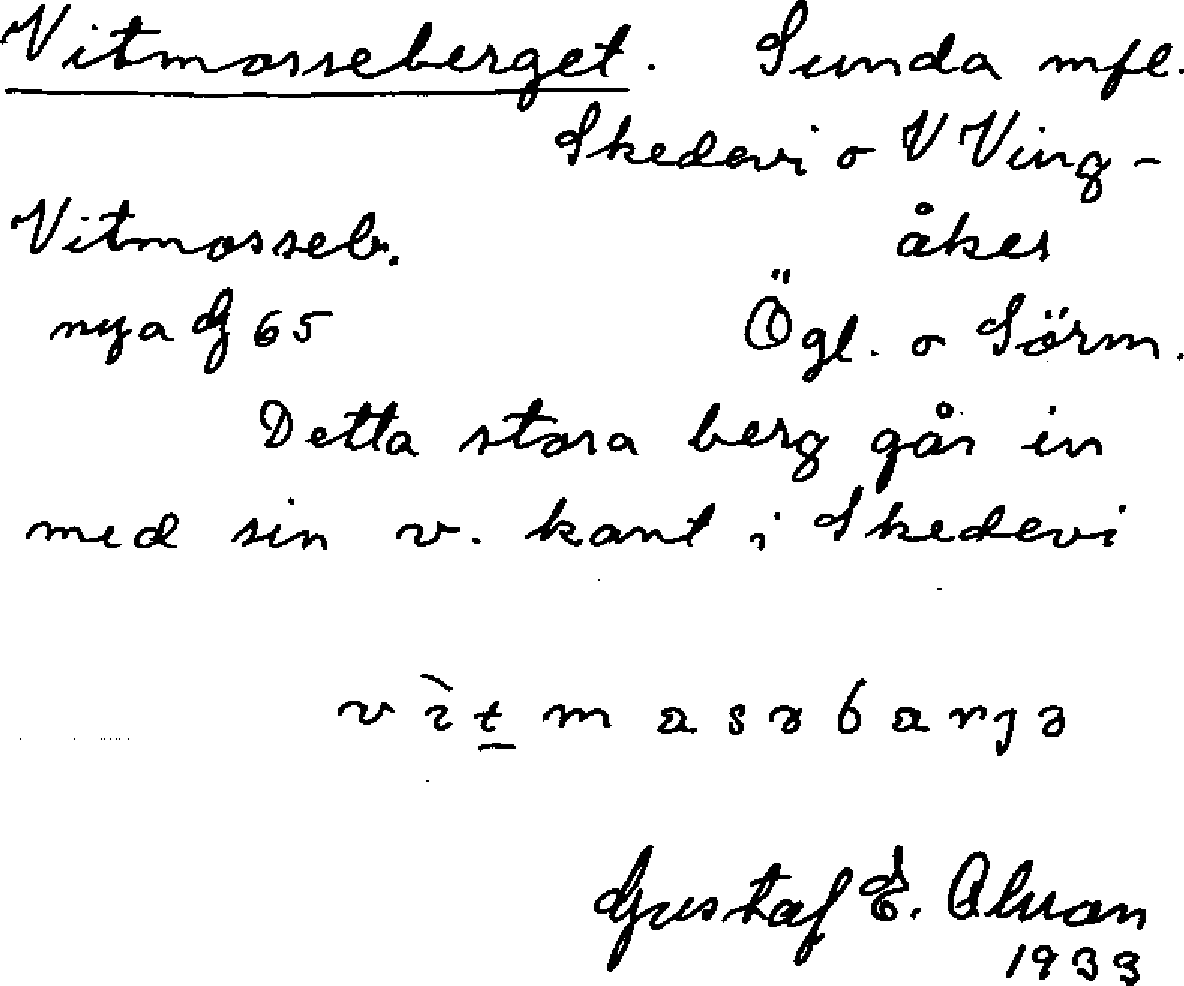 Vitmosseberget. Sunda mfl.
Skedevi o V Ving-
Vitmosseb. åker
nya G 65 Ögl. o Sörm.
Detta stora berg går in
med sin v. kant i Skedevi
Gustaf E.
1933